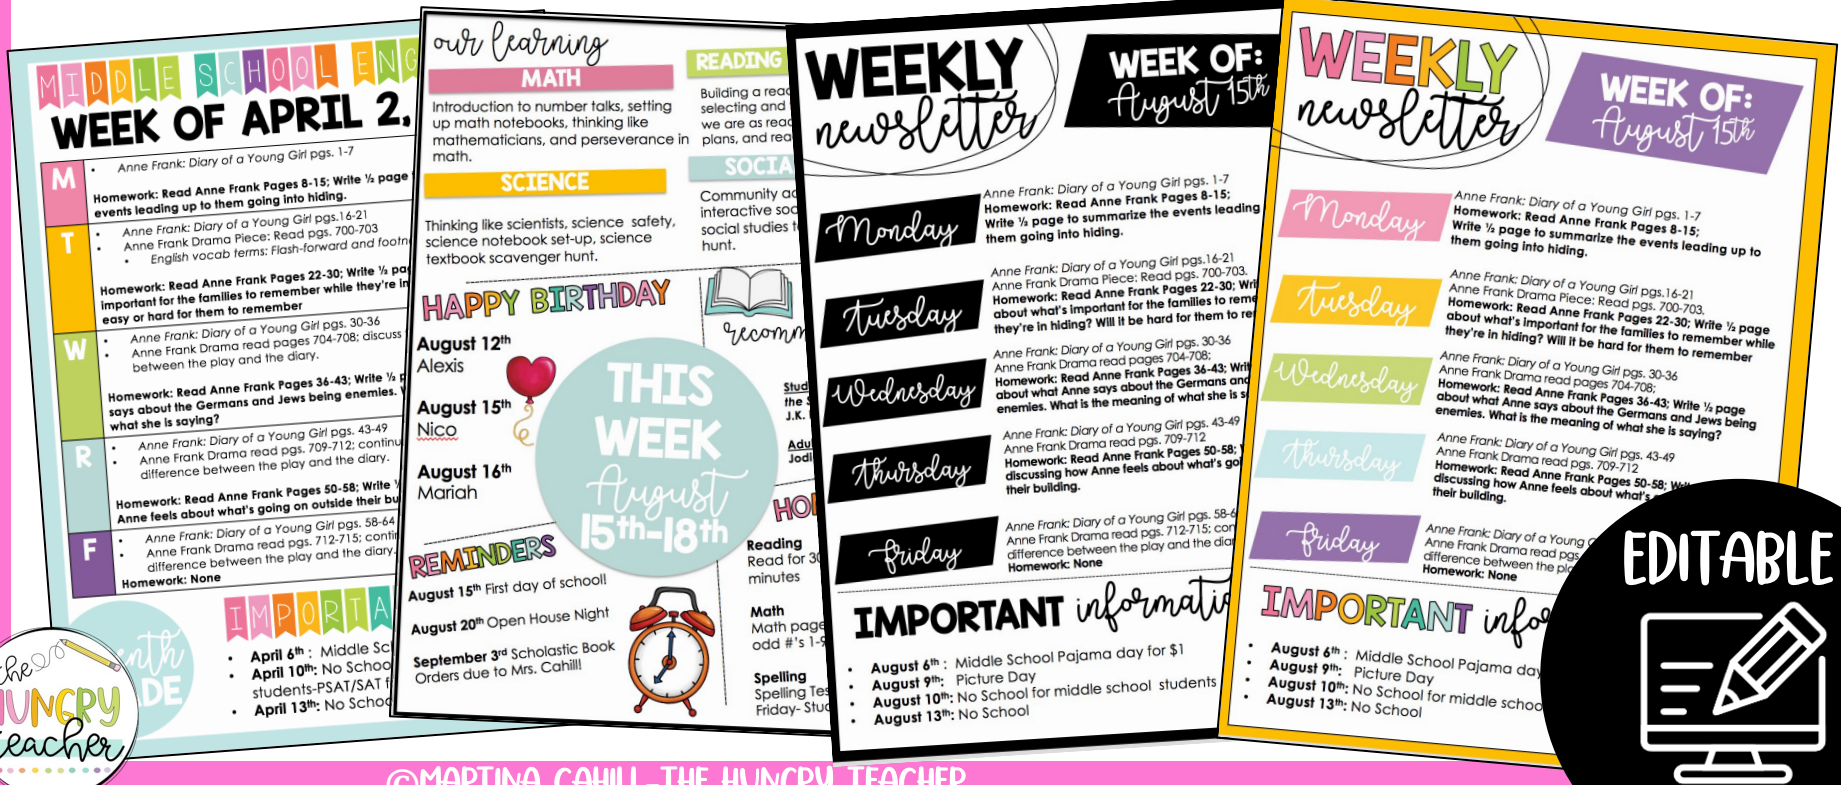 MIDDLE SCHOOL ENG
WEEK OF APRIL 2,
M
• Anne Frank: Diary of a Young Girl pgs. 1-7
Homework: Read Anne Frank Pages 8-15; Write ½ page
events leading up to them going into hiding.
T
• Anne Frank: Diary of a Young Girl pgs.16-21
• Anne Frank Drama Piece: Read pgs. 700-703
• English vocab terms: Flash-forward and footn
Homework: Read Anne Frank Pages 22-30; Write ½ pag
important for the families to remember while they're in
easy or hard for them to remember
W
• Anne Frank: Diary of a Young Girl pgs. 30-36
• Anne Frank Drama read pages 704-708; discuss
between the play and the diary.
Homework: Read Anne Frank Pages 36-43; Write ½ p
says about the Germans and Jews being enemies.
what she is saying?
R
• Anne Frank: Diary of a Young Girl pgs. 43-49
• Anne Frank Drama read pgs. 709-712; continu
difference between the play and the diary.
Homework: Read Anne Frank Pages 50-58; Write
Anne feels about what's going on outside their bu
F
• Anne Frank: Diary of a Young Girl pgs. 58-64
• Anne Frank Drama read pgs. 712-715; contin
difference between the play and the diary.
Homework: None
IMPORTA
• April 6th : Middle Sc
• April 10th: No Schoo
students-PSAT/SAT f
• April 13th: No Schoo
enth
DE
the
HUNGRY
teacher
our learning
MATH
Introduction to number talks, setting
up math notebooks, thinking like
mathematicians, and perseverance in
math.
SCIENCE
Thinking like scientists, science safety,
science notebook set-up, science
textbook scavenger hunt.
READING
Building a reac
selecting and
we are as reac
plans, and rea
SOCIA
Community ac
interactive soc
social studies t
hunt.
HAPPY BIRTHDAY
August 12th
Alexis
August 15th
Nico
August 16th
Mariah
recomm
Stud
the S
J.K.
Adul
Jodi
THIS
WEEK
August
15th-18th
REMINDERS
August 15th First day of school!
August 20th Open House Night
September 3rd Scholastic Book
Orders due to Mrs. Cahill!
HO
Reading
Read for 30
minutes
Math
Math page
odd #'s 1-9
Spelling
Spelling Tes
Friday- Stud
WEEKLY
newsletter
WEEK OF:
August 15th
Monday
Anne Frank: Diary of a Young Girl pgs. 1-7
Homework: Read Anne Frank Pages 8-15;
Write ½ page to summarize the events leading
them going into hiding.
Tuesday
Anne Frank: Diary of a Young Girl pgs.16-21
Anne Frank Drama Piece: Read pgs. 700-703.
Homework: Read Anne Frank Pages 22-30; Wri
about what's important for the families to reme
they're in hiding? Will it be hard for them to re
Wednesday
Anne Frank: Diary of a Young Girl pgs. 30-36
Anne Frank Drama read pages 704-708;
Homework: Read Anne Frank Pages 36-43; Writ
about what Anne says about the Germans and
enemies. What is the meaning of what she is s
Thursday
Anne Frank: Diary of a Young Girl pgs. 43-49
Anne Frank Drama read pgs. 709-712
Homework: Read Anne Frank Pages 50-58;
discussing how Anne feels about what's goi
their building.
friday
Anne Frank: Diary of a Young Girl pgs. 58-6
Anne Frank Drama read pgs. 712-715; con
difference between the play and the diar
Homework: None
IMPORTANT informati
• August 6th : Middle School Pajama day for $1
• August 9th: Picture Day
• August 10th: No School for middle school students
• August 13th: No School
WEEKLY
newsletter
WEEK OF:
August 15th
Monday
Anne Frank: Diary of a Young Girl pgs. 1-7
Homework: Read Anne Frank Pages 8-15;
Write ½ page to summarize the events leading up to
them going into hiding.
Tuesday
Anne Frank: Diary of a Young Girl pgs.16-21
Anne Frank Drama Piece: Read pgs. 700-703.
Homework: Read Anne Frank Pages 22-30; Write ½ page
about what's important for the families to remember while
they're in hiding? Will it be hard for them to remember
Wednesday
Anne Frank: Diary of a Young Girl pgs. 30-36
Anne Frank Drama read pages 704-708;
Homework: Read Anne Frank Pages 36-43; Write ½ page
about what Anne says about the Germans and Jews being
enemies. What is the meaning of what she is saying?
Thursday
Anne Frank: Diary of a Young Girl pgs. 43-49
Anne Frank Drama read pgs. 709-712
Homework: Read Anne Frank Pages 50-58; Wri
discussing how Anne feels about what's
their building.
friday
Anne Frank: Diary of a Young G
Anne Frank Drama read pgs
difference between the pl
Homework: None
IMPORTANT info
• August 6th : Middle School Pajama day
• August 9th: Picture Day
• August 10th: No School for middle schoo
• August 13th: No School
EDITABLE
©MARTINA CAHILL-THE HUNGRY TEACHER